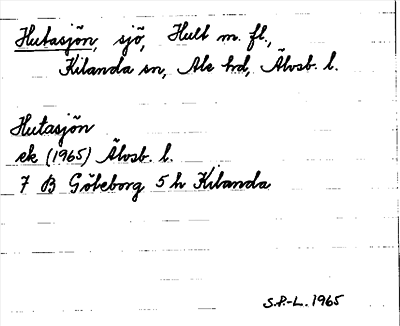 Hutasjön, sjö, Hult m. fl.,
Kilanda sn, Ale hd, Älvsb. l.
Hutasjön
ek (1965) Älvsb. l.
7 B Göteborg 5 h Kilanda
S.P.-L. 1965